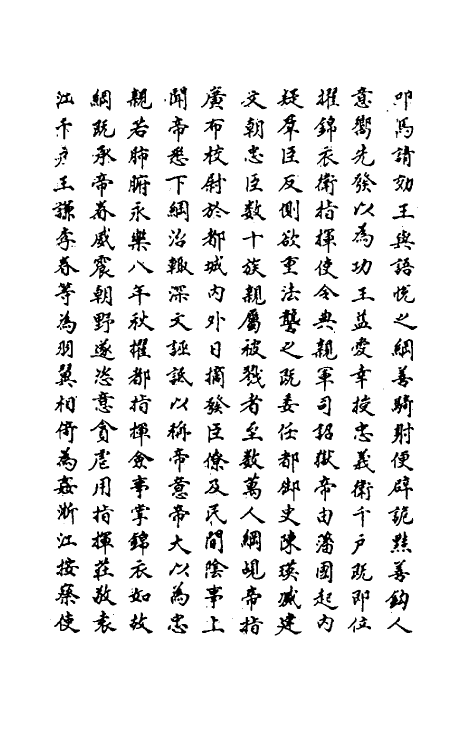 叩馬請効王與語悅之綱善騎射便辟詭黠善鈎人
意嚮先發以為功王益愛幸授忠義衛千戶既即位
擢錦衣衛指揮使令典親軍司詔獄帝由藩國起内
疑羣臣反側欲重法聾之既委任都御史陳瑛滅建
文朝忠臣數十族親屬被戮者至數萬人綱覘帝指
廣布校尉於都城内外日摘發臣僚及民間陰事上
聞帝悉下綱治輙深文誣詆以稱帝意帝大以為忠
親若肺腑永樂八年秋擢都指揮僉事掌錦衣如故
綱既承帝眷威震朝野遂恣意貪虐用指揮莊敬袁
江千戶王謙李春等為羽翼相倚為姦浙江按察使